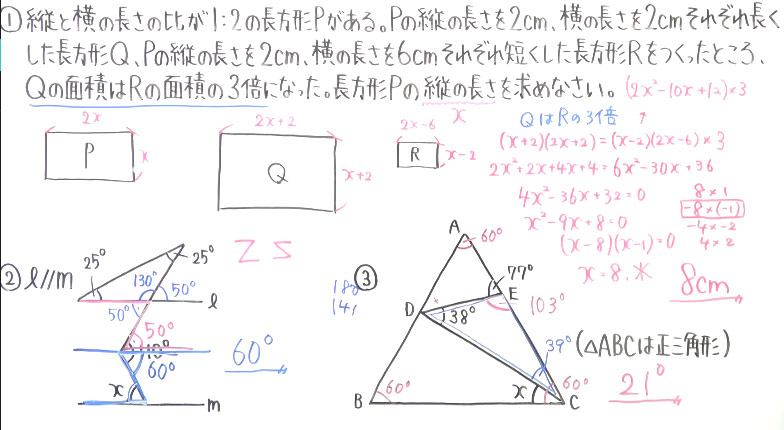 ① 縦と横の長さの比が1:2の長方形Pがある。Pの縦の長さを2cm、横の長さを2cmそれぞれ長く
した長方形Q、Pの縦の長さを2cm、横の長さを6cmそれぞれ短くした長方形Rをつくったところ、
Qの面積はRの面積の3倍になった。長方形Pの縦の長さを求めなさい。(2x²-10x+12)×3
x
QはRの3倍 ↑
2x
P
x
2x+2
Q
x+2
2x-6
R
x-2
(x+2)(2x+2)=(x-2)(2x-6)×3
2x²+2x+4x+4=6x²-30x+36
4x²-36x+32=0
x²-9x+8=0
(x-8)(x-1)=0
x=8.
8×1
-8×(-1)
-4×-2
4×2
8cm
② l//m
25°
25°
130°
50°
l
50°
50°
60°
x
m
Z S
60°
③
A
60°
77°
E
103°
D
38°
39°
B
60°
x
60°
C
(△ABCは正三角形)
21°